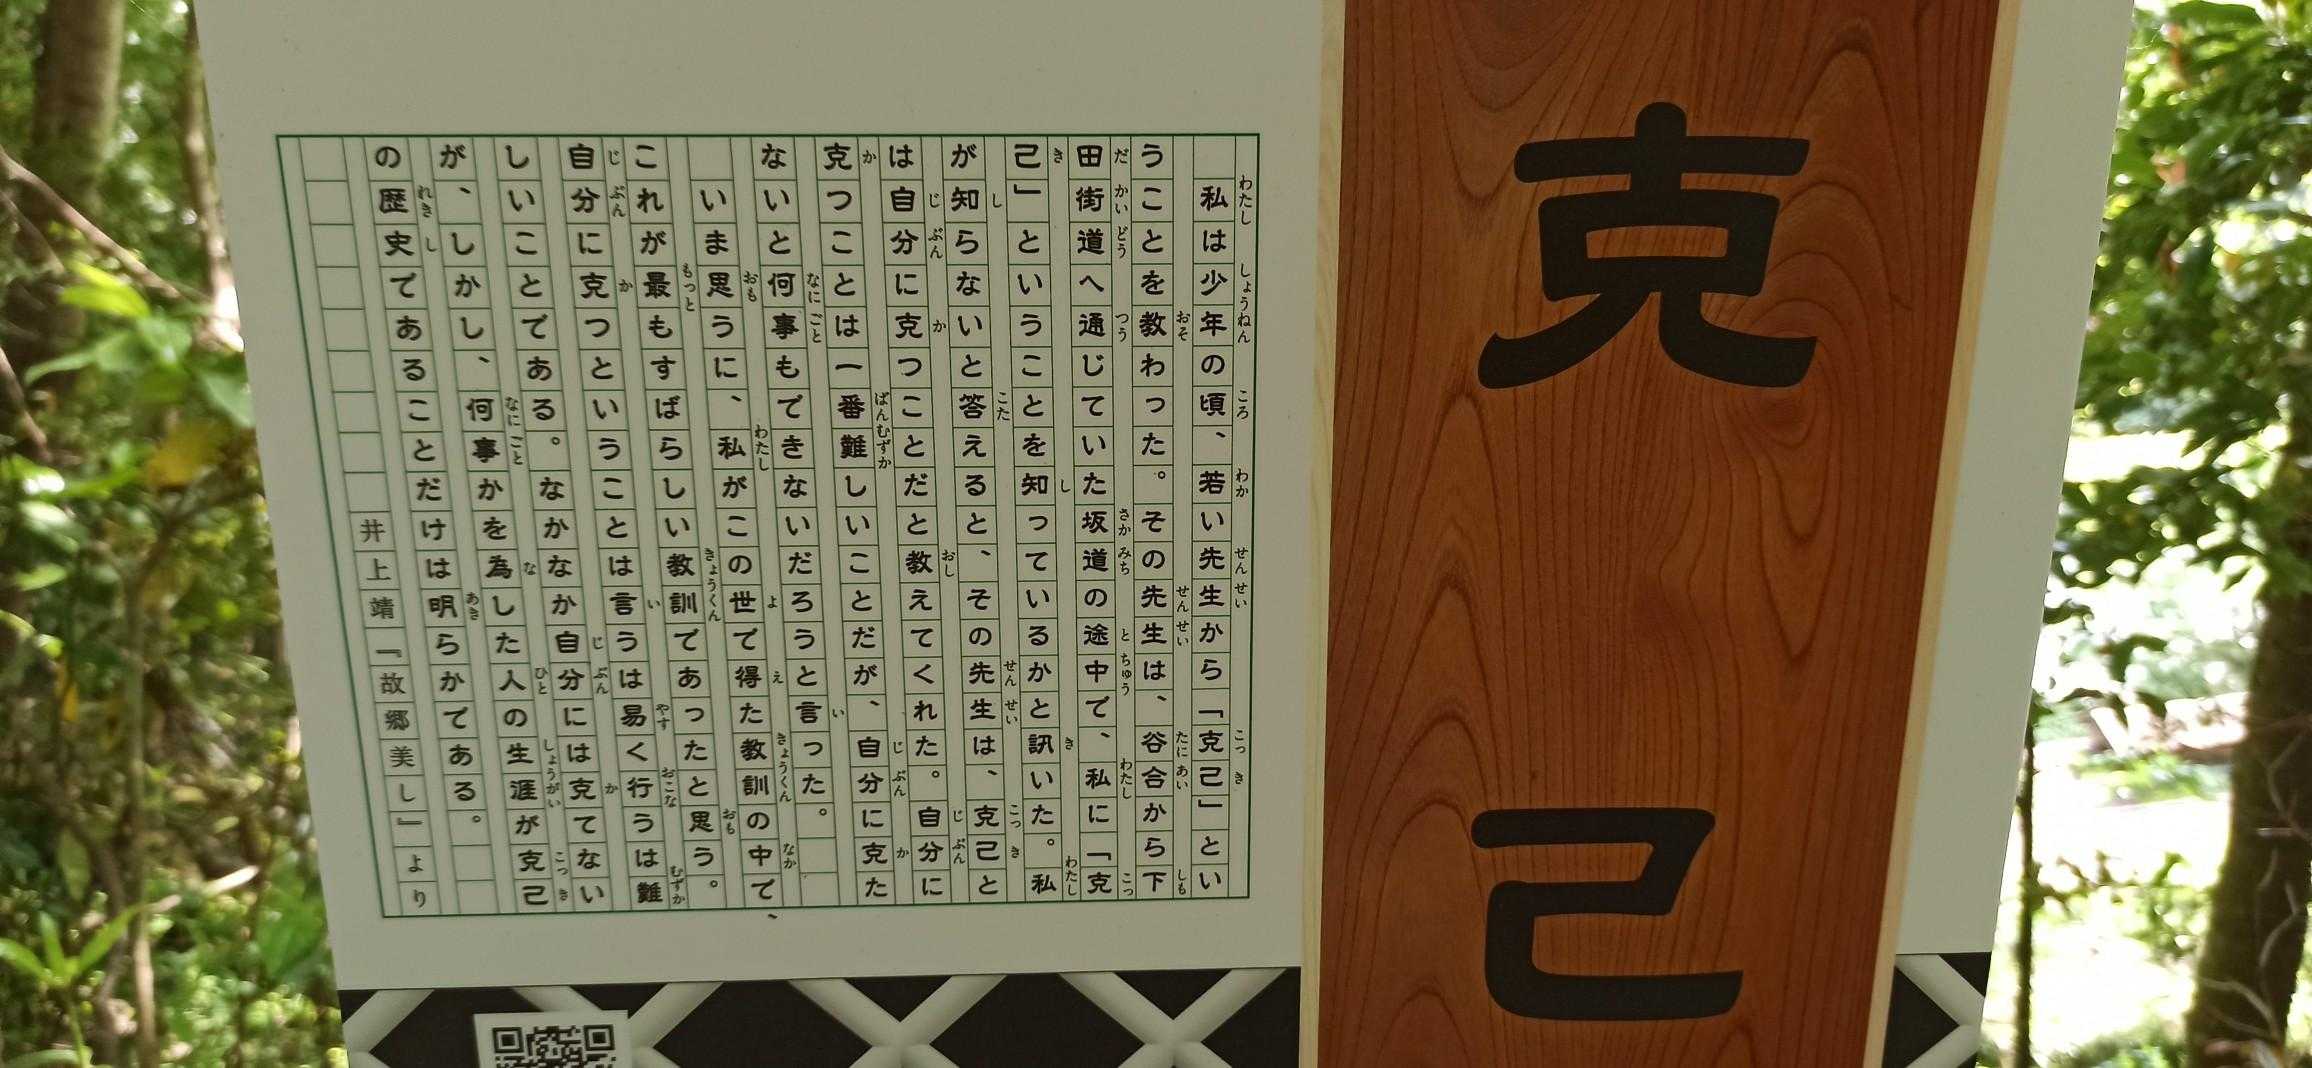 克己
私は少年の頃、若い先生から「克己」とい
うことを教わった。その先生は、谷合から下
田街道へ通じていた坂道の途中で、私に「克
己」ということを知っているかと訊いた。私
が知らないと答えると、その先生は、克己と
は自分に克つことだと教えてくれた。自分に
克つことは一番難しいことだが、自分に克た
ないと何事もできないだろうと言った。
いま思うに、私がこの世で得た教訓の中で、
これが最もすばらしい教訓であったと思う。
自分に克つということは言うは易く行うは難
しいことである。なかなか自分には克てない
が、しかし、何事かを為した人の生涯が克己
の歴史であることだけは明らかである。
井上靖『故郷美し』より